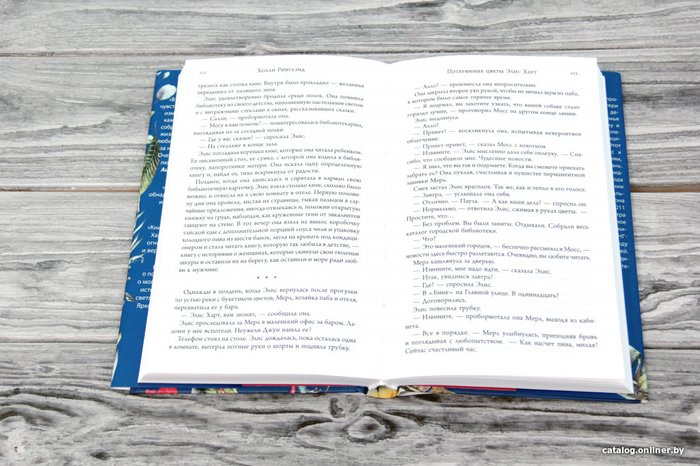 112 Холли Рингланд
трелось как стопка книг. Внутри было прохладно — желанная
передышка от палящего зноя.
Элис удовлетворенно бродила среди полок. Она помнила
библиотеку из своего детства, наполненную пастельным светом
и с витражными стеклами в окнах, рассказывавших сказки.
— Салли, — пробормотала она.
— Могу я вам помочь? — поинтересовалась библиотекарша,
выглядывая из-за соседней полки.
— Где у вас сказки? — спросила Элис.
— На стеллаже в конце зала.
Элис поглядила корешки книг, которые она читала ребенком.
Ее письменный стол, ее сумка, с которой она ходила в библио-
теку, папоротники матери. Она искала одну определенную
книгу и, найдя ее, тихо вскрикнула от радости.
Позднее, когда она записалась и спрятала в карман свою
библиотечную карточку, Элис взяла столько книг, сколько было
можно, и отвезла их к себе в комнату в отеле. Первую полови-
ну дня она провела, листая их страницы, тыкая пальцем в слу-
чайные предложения, иногда отвлекаясь и, положив открытую
книжку на грудь, наблюдая, как кружевные тени от эвкалиптов
танцуют на стене. В тот вечер она вынесла на вынос коробочку
тайской еды с дополнительной порцией соуса чили и упаковку
холодного пива из шести банок, легла на кровать под кондицио-
нером и стала читать книгу, которую так любила в детстве, —
книгу с историями о женщинах, которые скинули свои тюленьи
шкуры и оставили их на берегу, как оставили и море ради люб-
ви к мужчине.
* * *
Однажды в полдень, когда Элис вернулась после прогулки
по устью реки с букетиком цветов, Мерл, хозяйка паба и отеля,
перехватила ее у бара.
— Элис Харт, вам звонят, — сообщила она.
Элис проследовала за Мерл в маленький офис за баром. Ла-
дони у нее вспотели. Неужели Джун нашла ее?
Телефон стоял на столе. Элис дождалась, пока осталась одна
в комнате, вытерла потные руки о шорты и подняла трубку.
Потерянные цветы Элис Харт
— Алло? — произнесла она вопросительно.
Она закрыла второе ухо рукой, чтобы не мешал шум из паба,
в котором было самое горячее время.
— Я подумал, вы захотите узнать, что вашей собаке стало
гораздо лучше, — проговорил Мосс на другом конце линии.
Элис выдохнула.
— Алло?
— Привет! — воскликнула она, испытывая невероятное
облегчение.
— Привет-привет, — сказал Мосс с хохотком.
— Извините. — Элис мысленно дала себе оплеуху. — Спа-
сибо, что сообщили мне. Чудесные новости.
— Я знал, что вы так и подумаете. Когда вы сможете приехать
забрать ее? Она пухлая, счастливая и пушистее перманентной
завивки Мерл.
Смех застал Элис врасплох. Так же, как и тепло в его голосе.
— Завтра, — услышала себя она.
— Отлично. — Пауза. — А как ваши дела? — спросил он.
— Нормально, — ответила Элис, сжимая в руках цветы. —
Простите, что...
— Без проблем. Вы были заняты. Отдыхали. Собирали весь
каталог городской библиотеки.
— Что?
— Это маленький городок, — беспечно рассмеялся Мосс, —
новости здесь быстро разлетаются. Очевидно, вы любите читать.
Мерл кашлянула за дверью.
— Извините, мне надо идти, — сказала Элис.
— Итак, увидимся завтра?
— Где? — спросила Элис.
— В «Бине» на Главной улице. В одиннадцать?
— Договорились.
Элис повесила трубку.
— Извините, — пробормотала она Мерл, выходя из каби-
нета.
— Все в порядке. — Мерл улыбнулась, приподняв бровь
и поглядывая с любопытством. — Как насчет пива, милая?
Сейчас счастливый час.
catalog.onliner.by